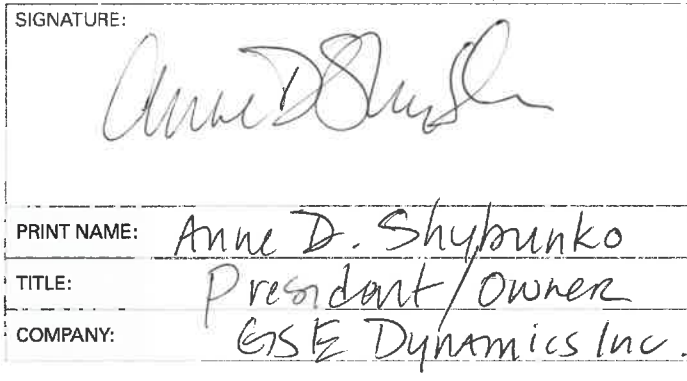 SIGNATURE:
Anne D Shyb
PRINT NAME: Anne D. Shybunko
TITLE: President/Owner
COMPANY: GSE Dynamics Inc.